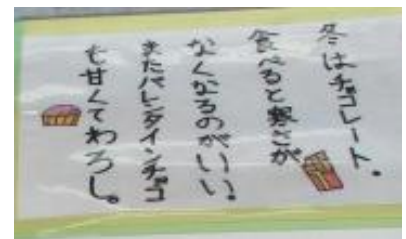 冬はチョコレート。
食べると寒さが
なくなるのがいい。
またバレンタインチョコ
も甘くてわろし。